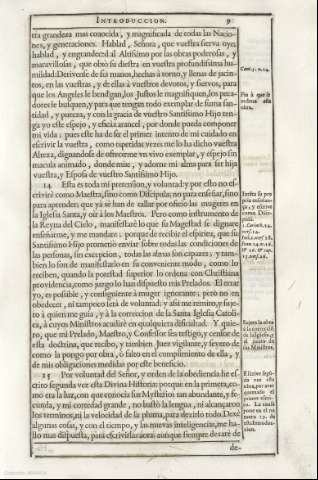 INTRODUCCION. 9
tra grandeza mas conocida, y magnificada de todas las Nacio-
nes, y generaciones. Hablad, Señora, que vuestra sierva oye,
hablad, y engrandeced al Altissimo por las obras poderosas, y
maravillosas, que obrò su diestra en vuestra profundissima hu-
mildad. Derivense de sus manos, hechas à torno, y llenas de jacin-
tos, en las vuestras, y de ellas à vuestros devotos, y siervos, para
que los Angeles le bendigan, los Justos le magnifiquen, los peca-
dores le busquen, y para que tengan todo exemplar de suma san-
tidad, y pureza, y con la gracia de vuestro Santissimo Hijo ten-
ga yo este espejo, y eficàz arancel, por donde pueda componer
mi vida: pues este ha de ser el primer intento de mi cuidado en
escrivir la vuestra, como repetidas vezes me lo ha dicho vuestra
Alteza, dignandose de ofrecerme un vivo exemplar, y espejo sin
macula animado, donde mire, y adorne mi alma para ser hija
vuestra, y Esposa de vuestro Santissimo Hijo.
14 Esta es toda mi pretension, y voluntad: y por esto no es-
crivirè como Maestra, sino como Discipula; no para enseñar, sino
para aprender; que yà sè han de callar por oficio las mugeres en
la Iglesia Santa, y oir à los Maestros. Pero como instrumento de
la Reyna del Cielo, manifestarè lo que su Magestad se dignare
enseñarme, y me mandare; porque de recibir el espiritu, que su
Santissimo Hijo prometiò enviar sobre todas las condiciones de
las personas, sin excepcion, todas las almas son capaces: y tam-
bien lo son de manifestarlo en su conveniente modo, como lo
reciben, quando la potestad superior lo ordena con Christiana
providencia, como juzgo lo han dispuesto mis Prelados. El errar
yo, es posible, y consiguiente à muger ignorante; pero no en
obedecer, ni tampoco serà de voluntad: y assi me remito, y suje-
to à quien me guia, y à la correccion de la Santa Iglesia Catoli-
ca, à cuyos Ministros acudirè en qualquiera dificultad. Y quie-
ro, que mi Prelado, Maestro, y Confessor sea testigo, y censor de
esta doctrina, que recibo, y tambien Juez vigilante, y severo de
como la pongo por obra, ò falto en el cumplimiento de ella, y
de mis obligaciones medidas por este beneficio.
15 Por voluntad del Señor, y orden de la obediencia hè es-
crito segunda vez esta Divina Historia: porque en la primera, co-
mo era la luz, con que conocia sus Mysterios tan abundante, y fe-
cunda, y mi cortedad grande, no bastò la lengua, ni alcançaron
los terminos, ni la velocidad de la pluma, para dezirlo todo. Dexè
algunas cosas, y con el tiempo, y las nuevas inteligencias, me ha-
llo mas dispuesta, para escrivirlas aora: aunque siempre darè de
de-
Cant. 5. v. 14.